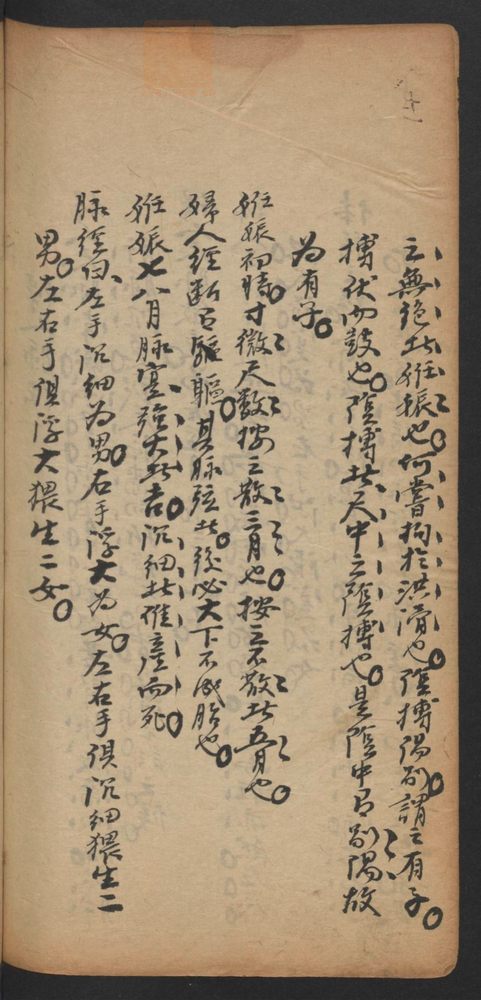 之無絕者姙娠也。何嘗拘於洪滑也。陰搏陽別謂之有子。
搏伏而鼓也。陰搏者尺中之陰搏也。是陰中有別陽故
為有子。
姙娠初時寸微尺數按之散三月也。按之不散者五月也。
婦人經斷有軀其脉弦者後必大下不成胎也。
姙娠七八月脉實強大者吉。沉細者難產而死。
脉經曰左手沉細為男。右手浮大為女。左右手俱沉細猥生二
男。左右手俱浮大猥生二女。